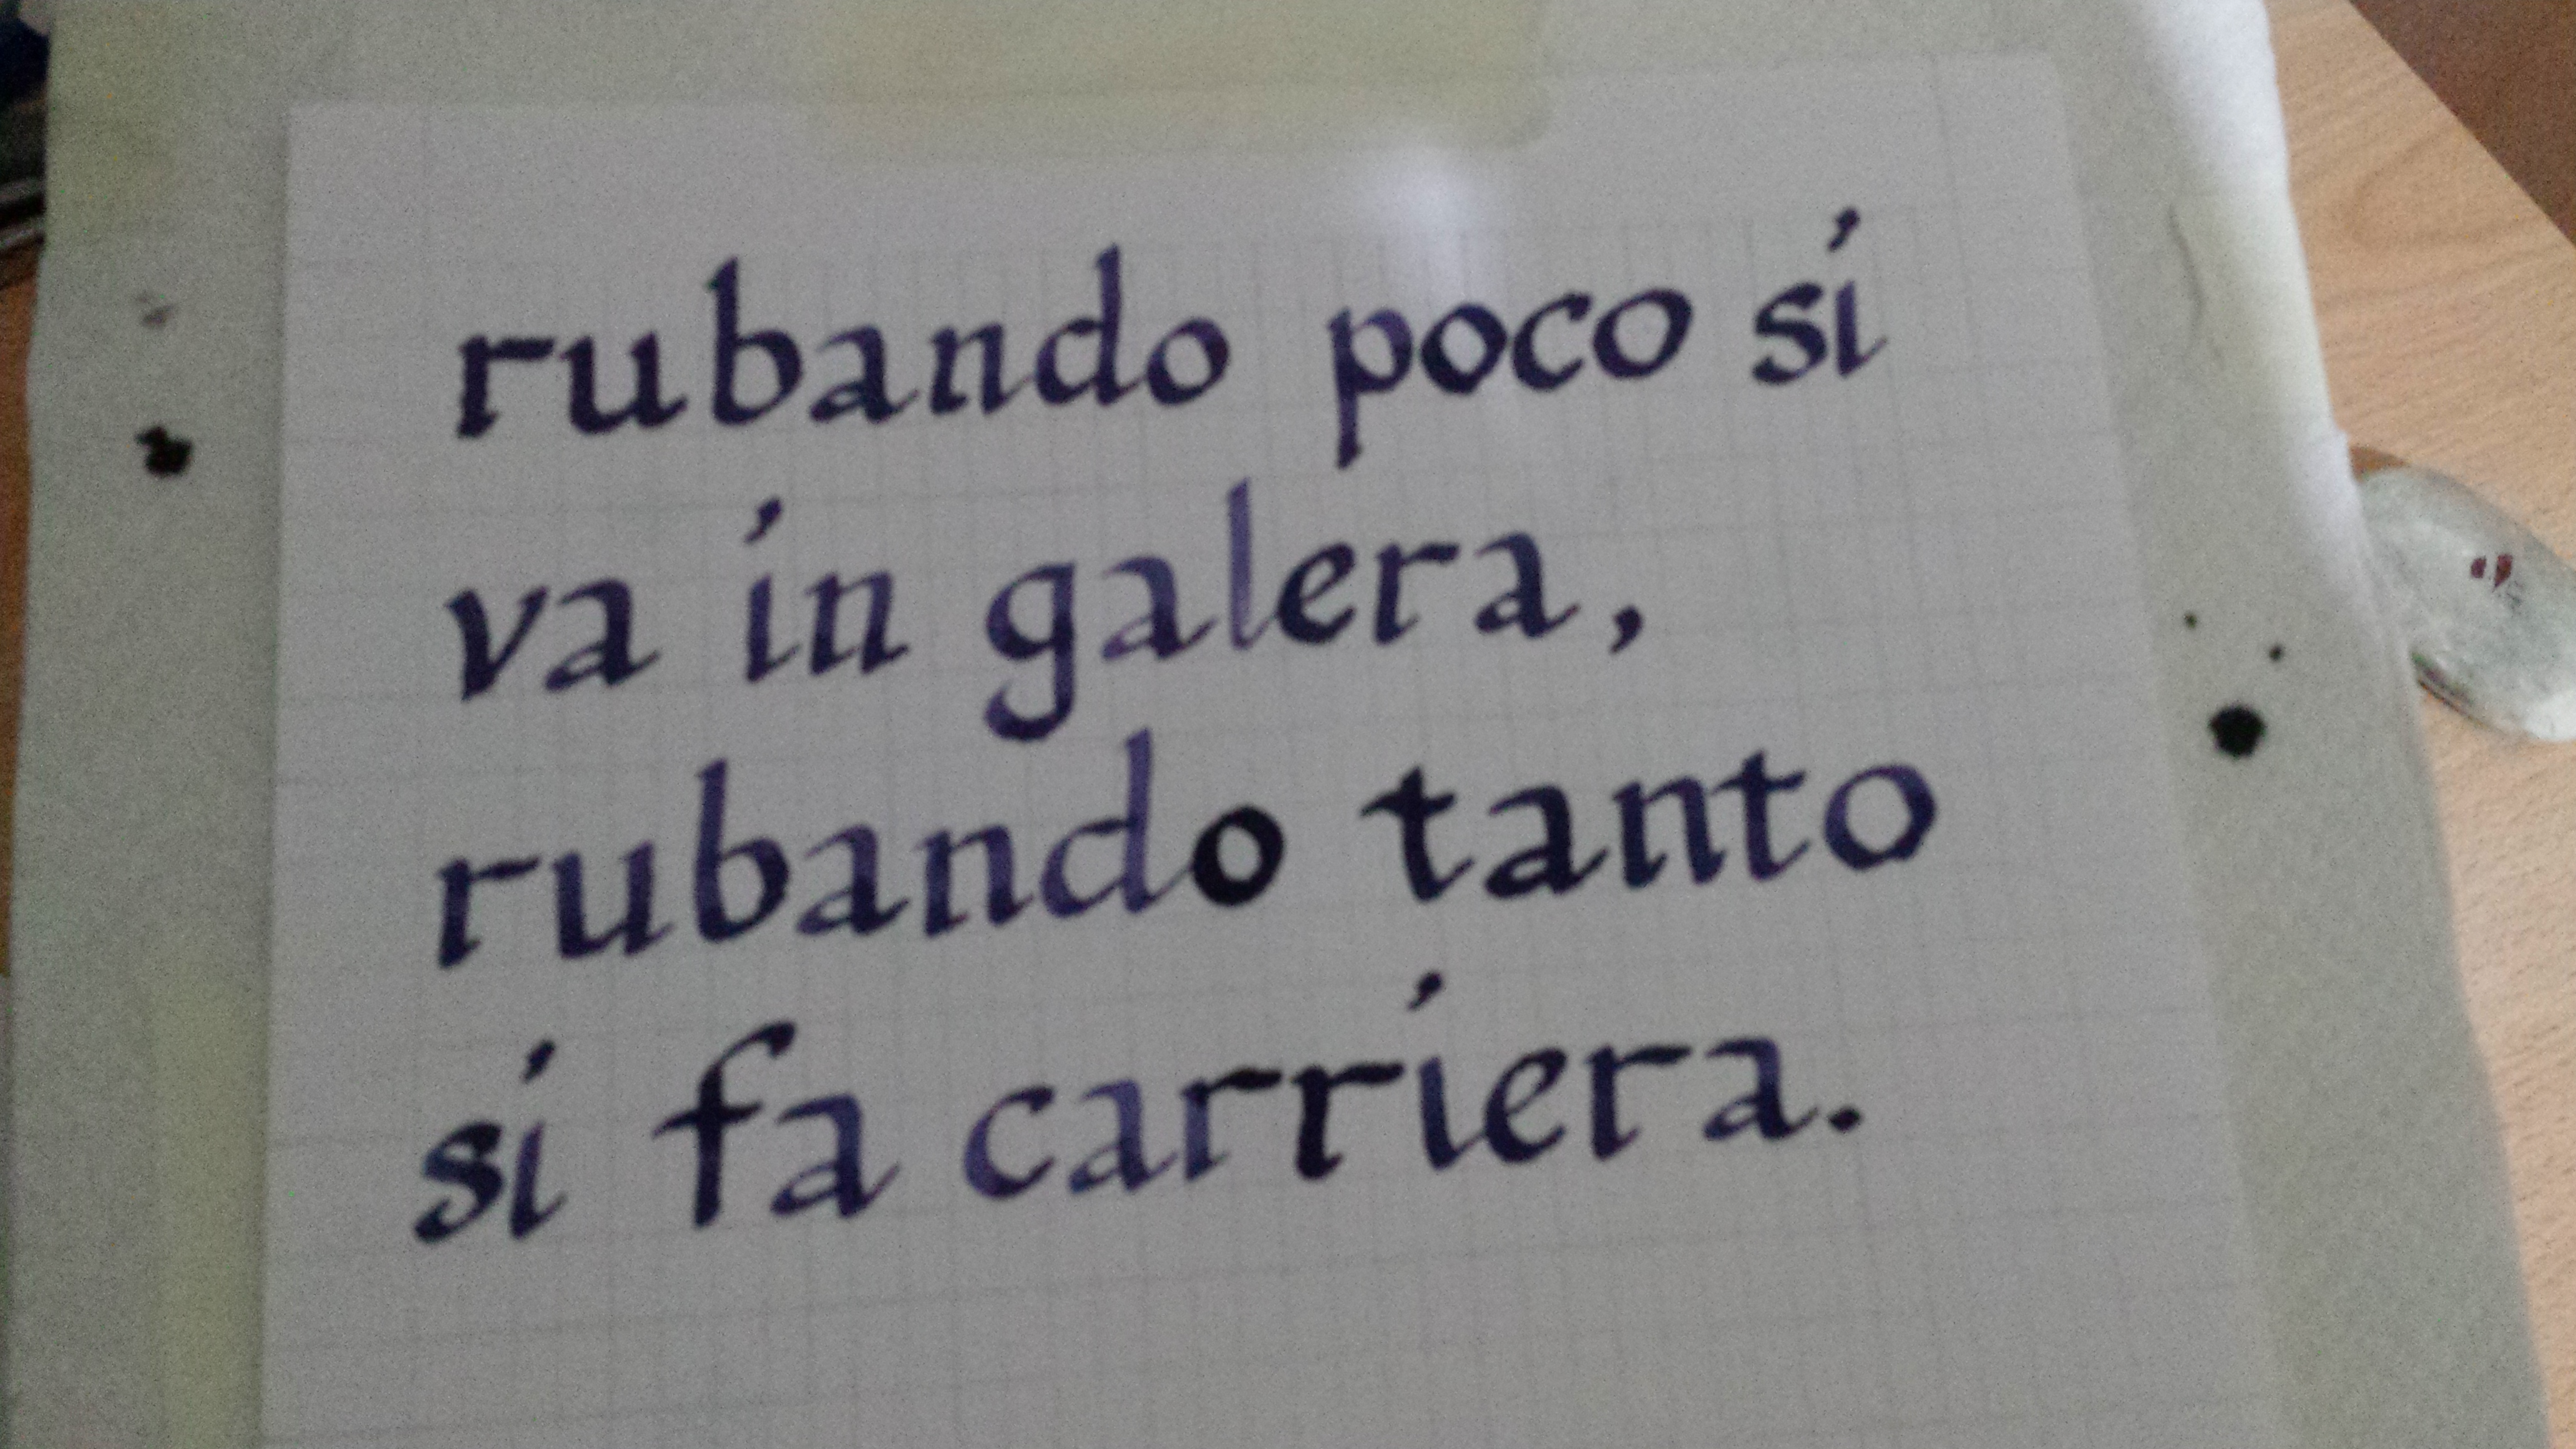 rubando poco si
va in galera,
rubando tanto
si fa carriera.